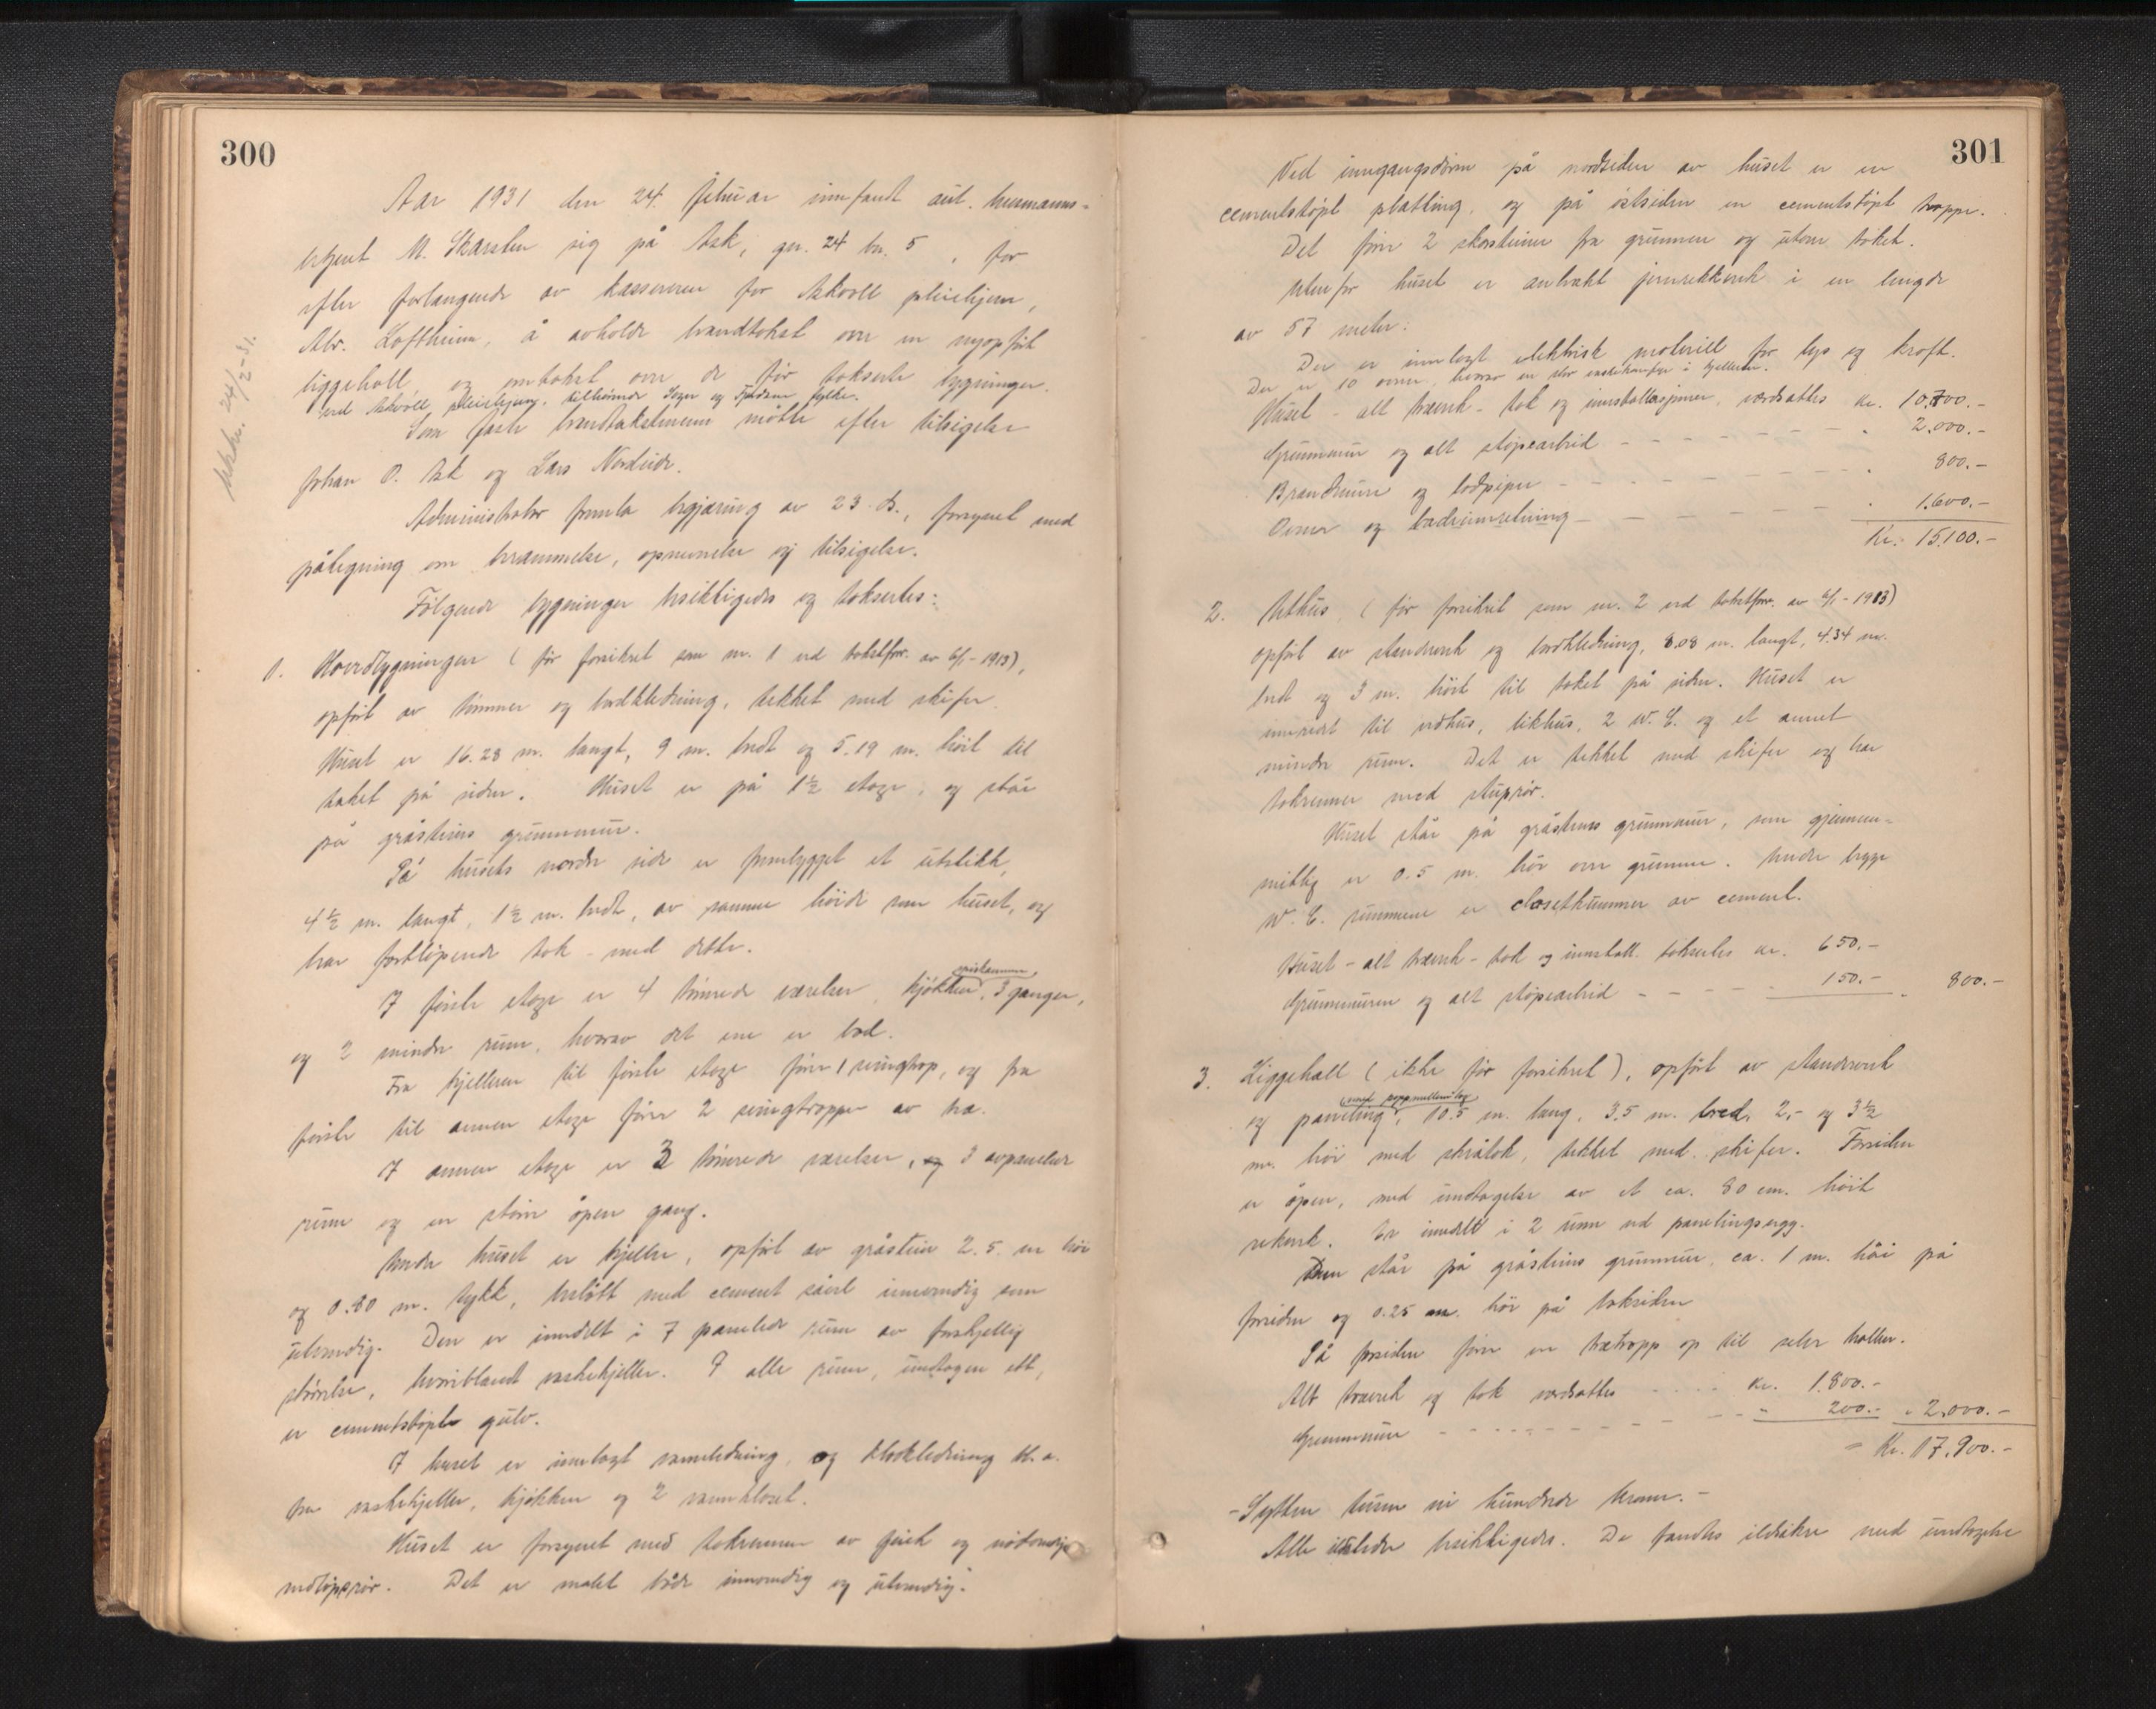 300
Utskr. 24/2-31.
Aar 1931 den 24. februar innfandt aut. lensmanns-
betjent M. Skarsten sig på Ask, gn. 24 bn. 5, for
efter forlangende av kassereren for Askvoll pleiehjem,
Alv. Loftheim, å avholde brandtakst over en nyopført
liggehall, og omtakst over de før takserte bygninger
ved Askvoll pleiehjem, tilhørende Sogn og Fjordane fylke.
Som faste brandtakstmenn møtte efter tilsigelse
Johan O. Ask og Lars Nordeide.
Administrator fremla begjæring av 23. ds., forsynet med
påtegning om berammelse, opnevnelse og tilsigelse.
Følgende bygninger besiktigedes og taksertes:
1. Hovedbygningen (før forsikret som nr. 1 ved takstforr. av 6/1-1913),
opført av tømmer og bordkledning, tekket med skifer.
Huset er 16.28 m. langt, 9 m. bredt og 5.19 m. høit til
taket på siden. Huset er på 1½ etage, og står
på gråsteins grunnmur.
På husets nordre side er frembygget et utstikk,
4½ m. langt, 1½ m. bredt, av samme høide som huset, og
har fortløpende tak med dette.
I første etage er 4 tømrede værelser, kjøkken, spiskammer, 3 ganger,
og 2 mindre rum, hvorav det ene er bad.
Fra kjelleren til første etage fører 1 svingtrop, og fra
første til annen etage fører 2 svingtropper av tre.
I annen etage er 3 tømrede værelser, og 3 avpanelede
rum og en større åpen gang.
Under huset er kjeller, opført av gråstein 2.5. m høi
og 0.80 m. tykk, beslått med cement såvel innvendig som
utvendig. Den er inndelt i 7 panelede rum av forskjellig
størrelse, hvoriblandt vaskekjeller. I alle rum, undtagen ett,
er cementstøpte gulv.
I huset er innlagt vannledning, og kloakledning bl. a.
fra vaskekjeller, kjøkken og 2 vannkloset.
Huset er forsynet med takrenner av sink og nødvendige
nedløpsrør. Det er malet både innvendig og utvendig.
301
Ved inngangsdøren på nordsiden av huset er en
cementstøpt platting, og på østsiden en cementstøpt trappe.
Det fører 2 skorsteiner fra grunnen og utom taket.
Utenfor huset er anbrakt jernrekkverk i en lengde
av 57 meter.
Der er innlagt elektrisk materiell for lys og kraft.
Der er 10 ovner, hvorav en stor vaskekomfyr i kjelleren.
Huset - alt treverk - tak og innstallasjoner, verdsattes kr. 10.700.-
Grunnmur og alt støpearbeid - - - - - - - " 2.000.-
Brandmure og lodpiper - - - - - - - " 800.-
Ovner og badeinnretning - - - - - - " 1.600.-
Kr. 15.100.-
2. Uthus, (før forsikret som nr. 2 ved takstforr. av 6/1-1913)
opført av standverk og bordkledning, 8.08 m. langt, 4.34 m.
bredt og 3 m. høit til taket på siden. Huset er
innredet til vedhus, likhus, 2 W. C. og et annet
mindre rum. Det er tekket med skifer og har
takrenner med stuprør.
Huset står på gråsteins grunnmur, som gjennem-
snittlig er 0.5 m. høi over grunnen. Under begge
W. C. rummene er closetkummer av cement.
Huset - alt treverk - tak og innstall. taksertes kr. 650.-
Grunnmuren og alt støpearbeid - - - - - 150.- " 800.-
3. Liggehall (ikke før forsikret), opført av standverk
og paneling, med pappmellemlag, 10.5 m. lang, 3.5 m. bred, 2,- og 3½
m. høi med skråtak, tekket med skifer. Forsiden
er åpen, med undtagelse av et ca. 80 cm. høit
rekverk. Er inndelt i 2 rum ved panelingsvegg.
Den står på gråsteins grunnmur, ca. 1 m. høi på
forsiden og 0.25 m. høi på baksiden
På forsiden fører en tretropp op til selve hallen.
Alt treverk og tak verdsattes - - - - kr. 1.800.-
Grunnmur - - - - - - - - " 200.- " 2.000.-
= Kr. 17.900.-
- Sytten tusen ni hundrede kroner. -
Alle ildsteder besiktigedes. De fandtes ildsikre med undtagelse